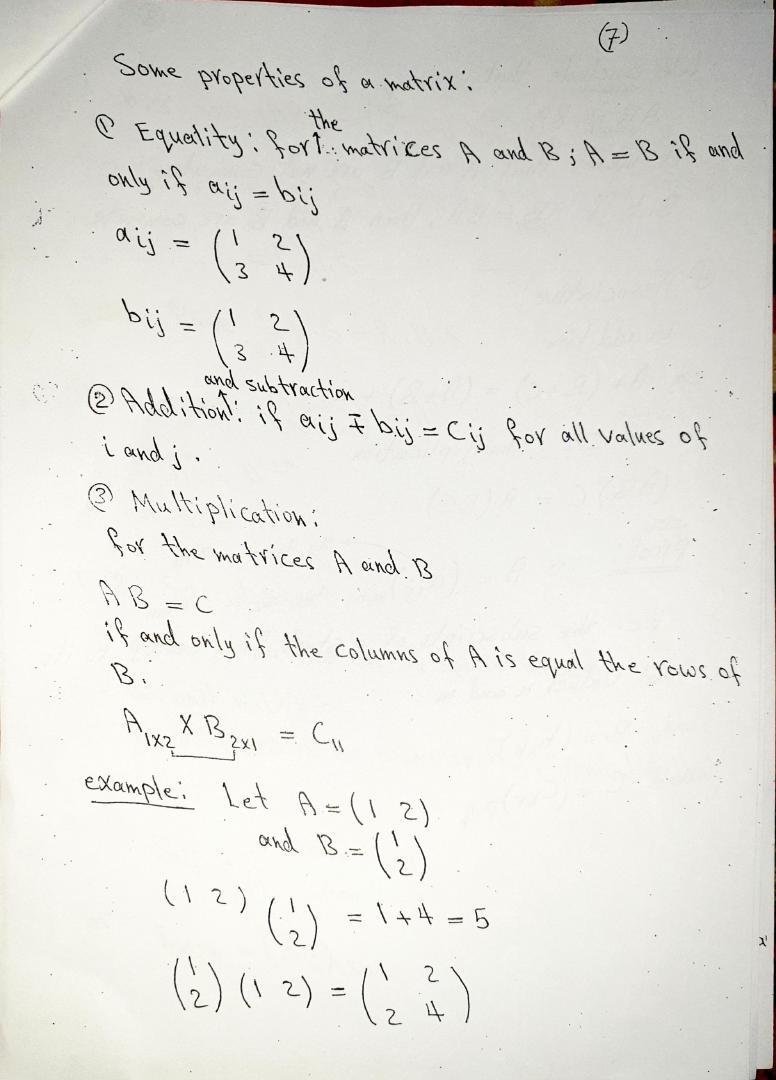 (7)
Some properties of a matrix:
① Equality: for the matrices A and B; A = B if and
only if aij = bij
aij = (1 2
3 4)
bij = (1 2
3 4)
and subtraction
② Addition: if aij ∓ bij = Cij for all values of
i and j.
③ Multiplication:
for the matrices A and B
AB = C
if and only if the columns of A is equal the rows of
B.
A1x2 X B2x1 = C11
example: Let A = (1 2)
and B = (1
2)
(1 2) (1
2) = 1+4 = 5
(1
2) (1 2) = (1 2
2 4)